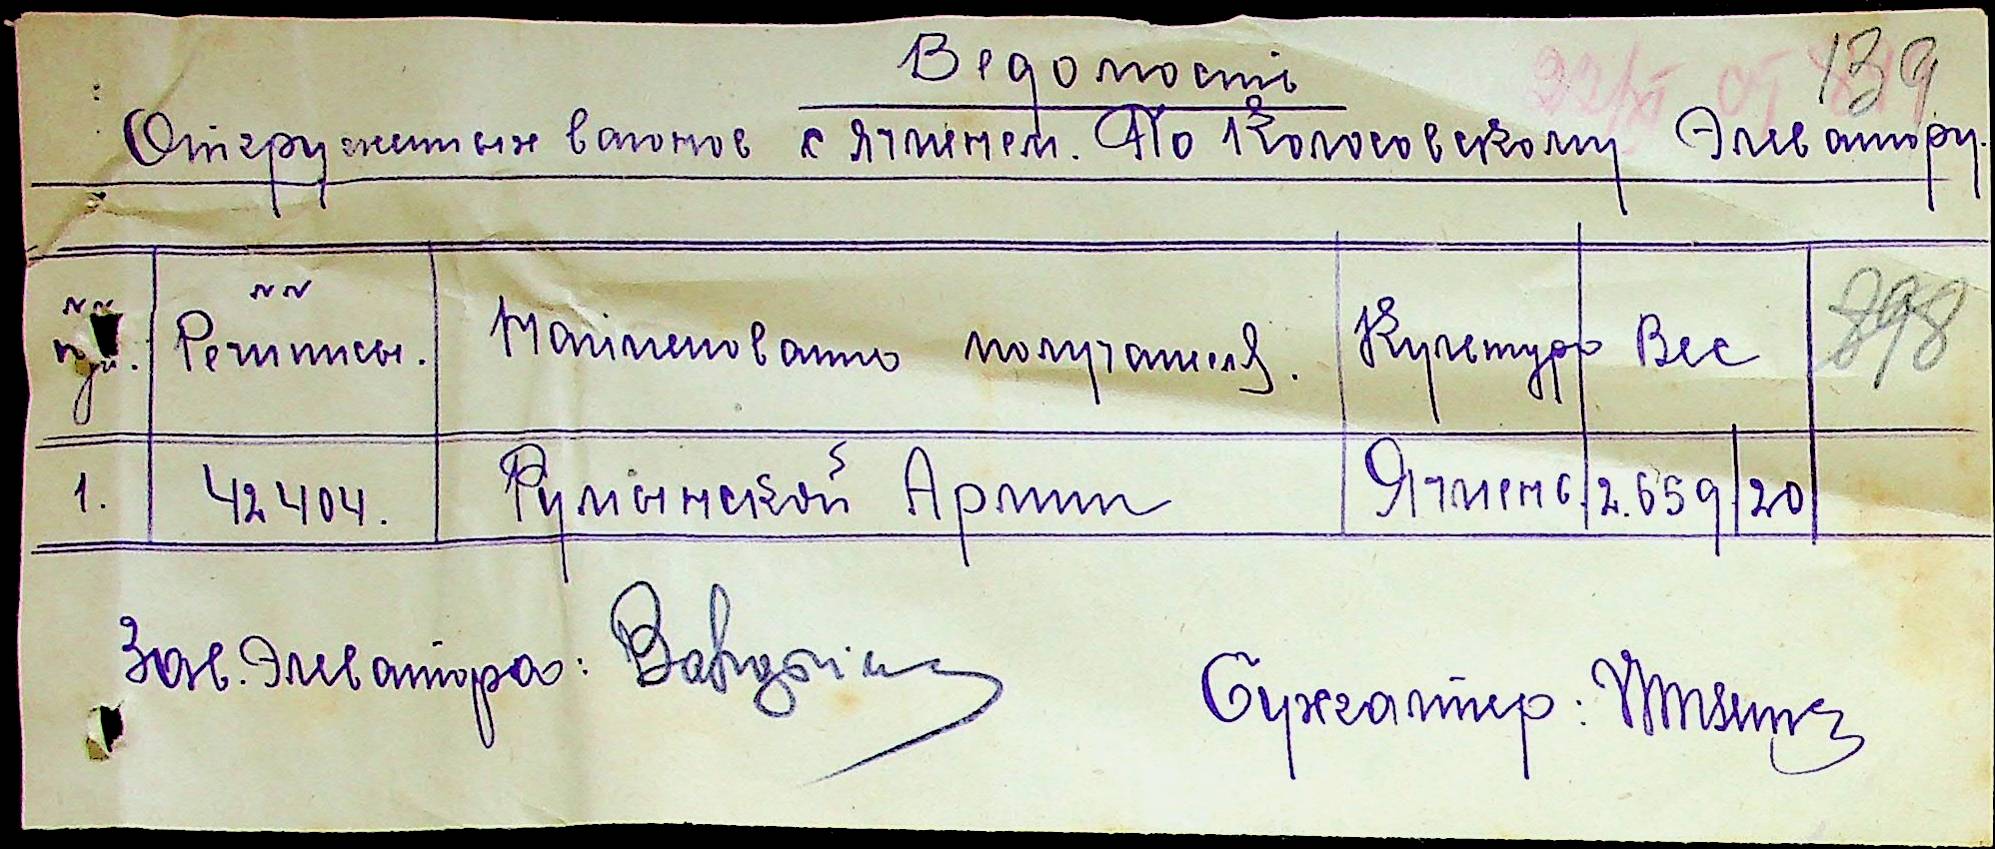 Ведомость
139
Отгруженных вагонов с ячменем. По Колосовскому Элеватору.
№№ п/п. №№ Рештисы. Наименование получателя. Культура Вес 898
1. 42404. Румынской Армии Ячмень. 2.659 20
Зав. Элеватора:
Бухгалтер: